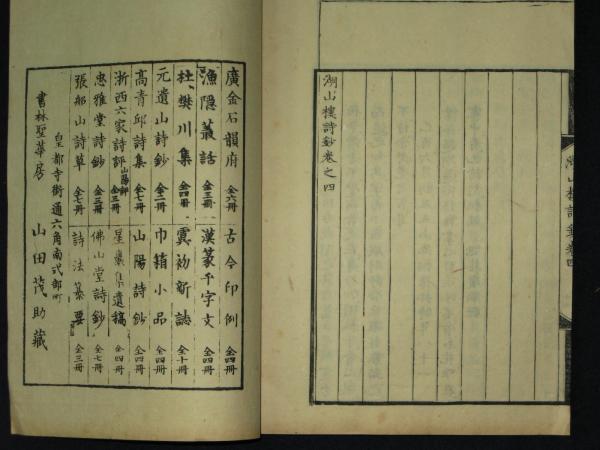 湖山樓詩鈔卷四
湖山樓詩鈔卷之四
廣金石韻府 全六冊 古今印例 全四冊
漁隱叢話 全三冊 漢篆千字文 全四冊
杜樊川集 全四冊 虞初新誌 全十冊
元遺山詩鈔 全二冊 巾箱小品 全四冊
高青邱詩集 全七冊 山陽詩鈔 全四冊
浙西六家詩評 山陽評 全三冊 星巖集遺稿 全四冊
忠雅堂詩鈔 全三冊 佛山堂詩鈔 全七冊
張船山詩草 全七冊 詩法纂要 全三冊
皇都寺街通六角南式部町
書林聖華房 山田茂助藏